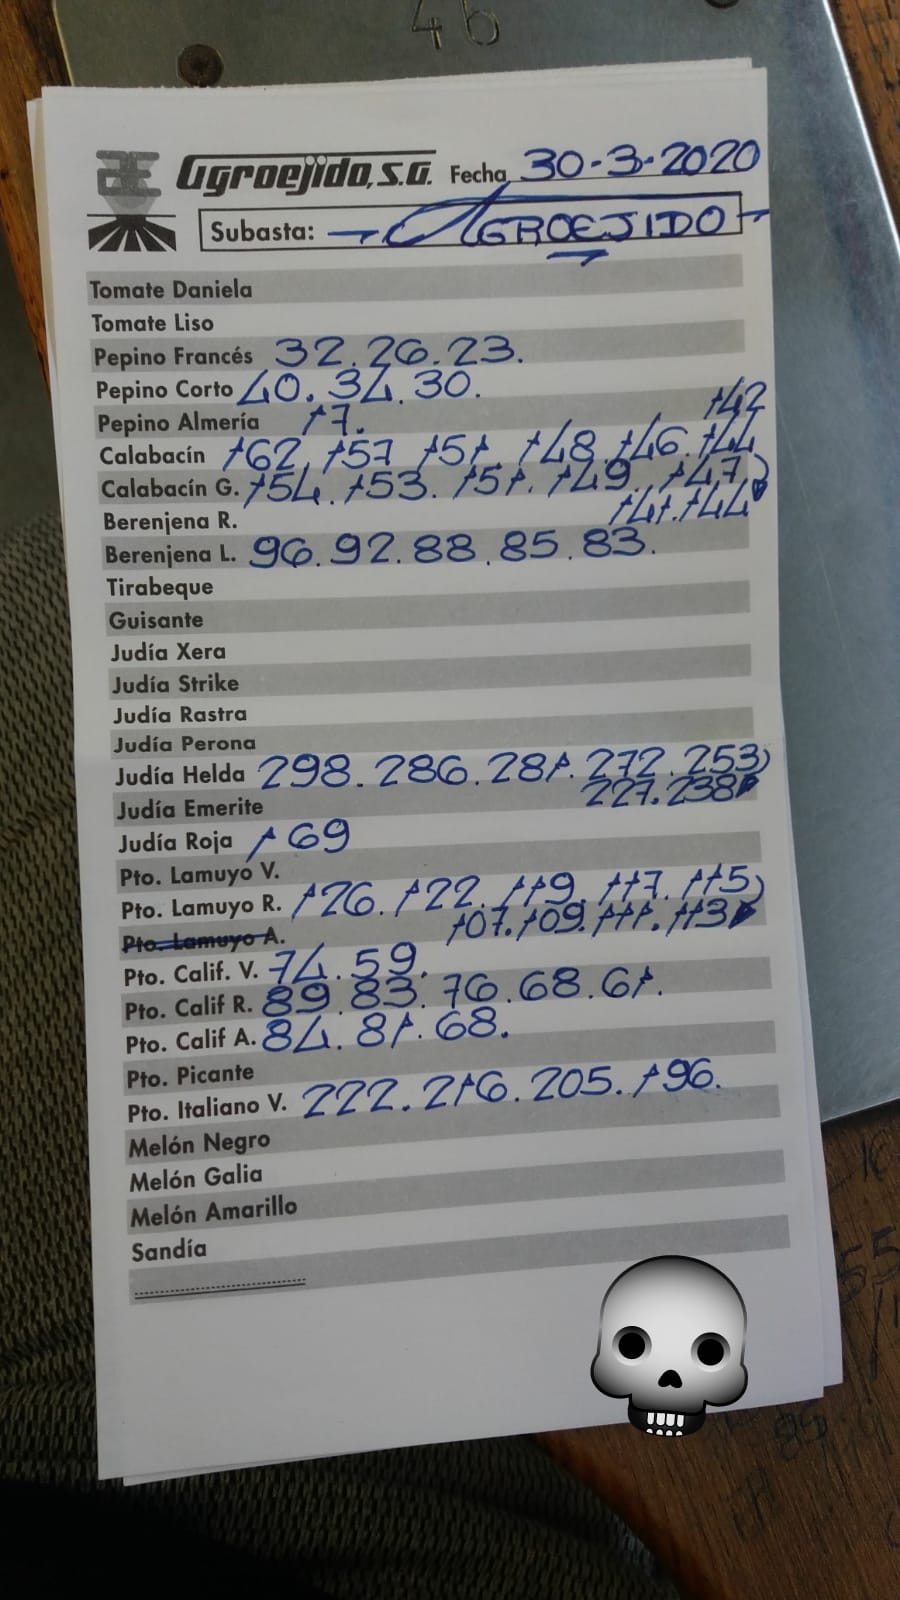 46
Agroejido, S.A. Fecha 30-3-2020
Subasta: AGROEJIDO
Tomate Daniela
Tomate Liso
Pepino Francés 32.26.23.
Pepino Corto 40.34.30.
Pepino Almería 17.
142
Calabacín 162.157.151.148.146.144
Calabacín G. 154.153.151.149.147)
Berenjena R. 141.144
Berenjena L. 96.92.88.85.83.
Tirabeque
Guisante
Judía Xera
Judía Strike
Judía Rastra
Judía Perona
Judía Helda 298.286.281.272.253)
Judía Emerite 227.238
Judía Roja 169
Pto. Lamuyo V.
Pto. Lamuyo R. 126.122.119.117.115)
Pto. Lamuyo A. 107.109.111.113
Pto. Calif. V. 74.59.
Pto. Calif R. 89.83.76.68.61.
Pto. Calif A. 84.81.68.
Pto. Picante
Pto. Italiano V. 222.216.205.196.
Melón Negro
Melón Galia
Melón Amarillo
Sandía